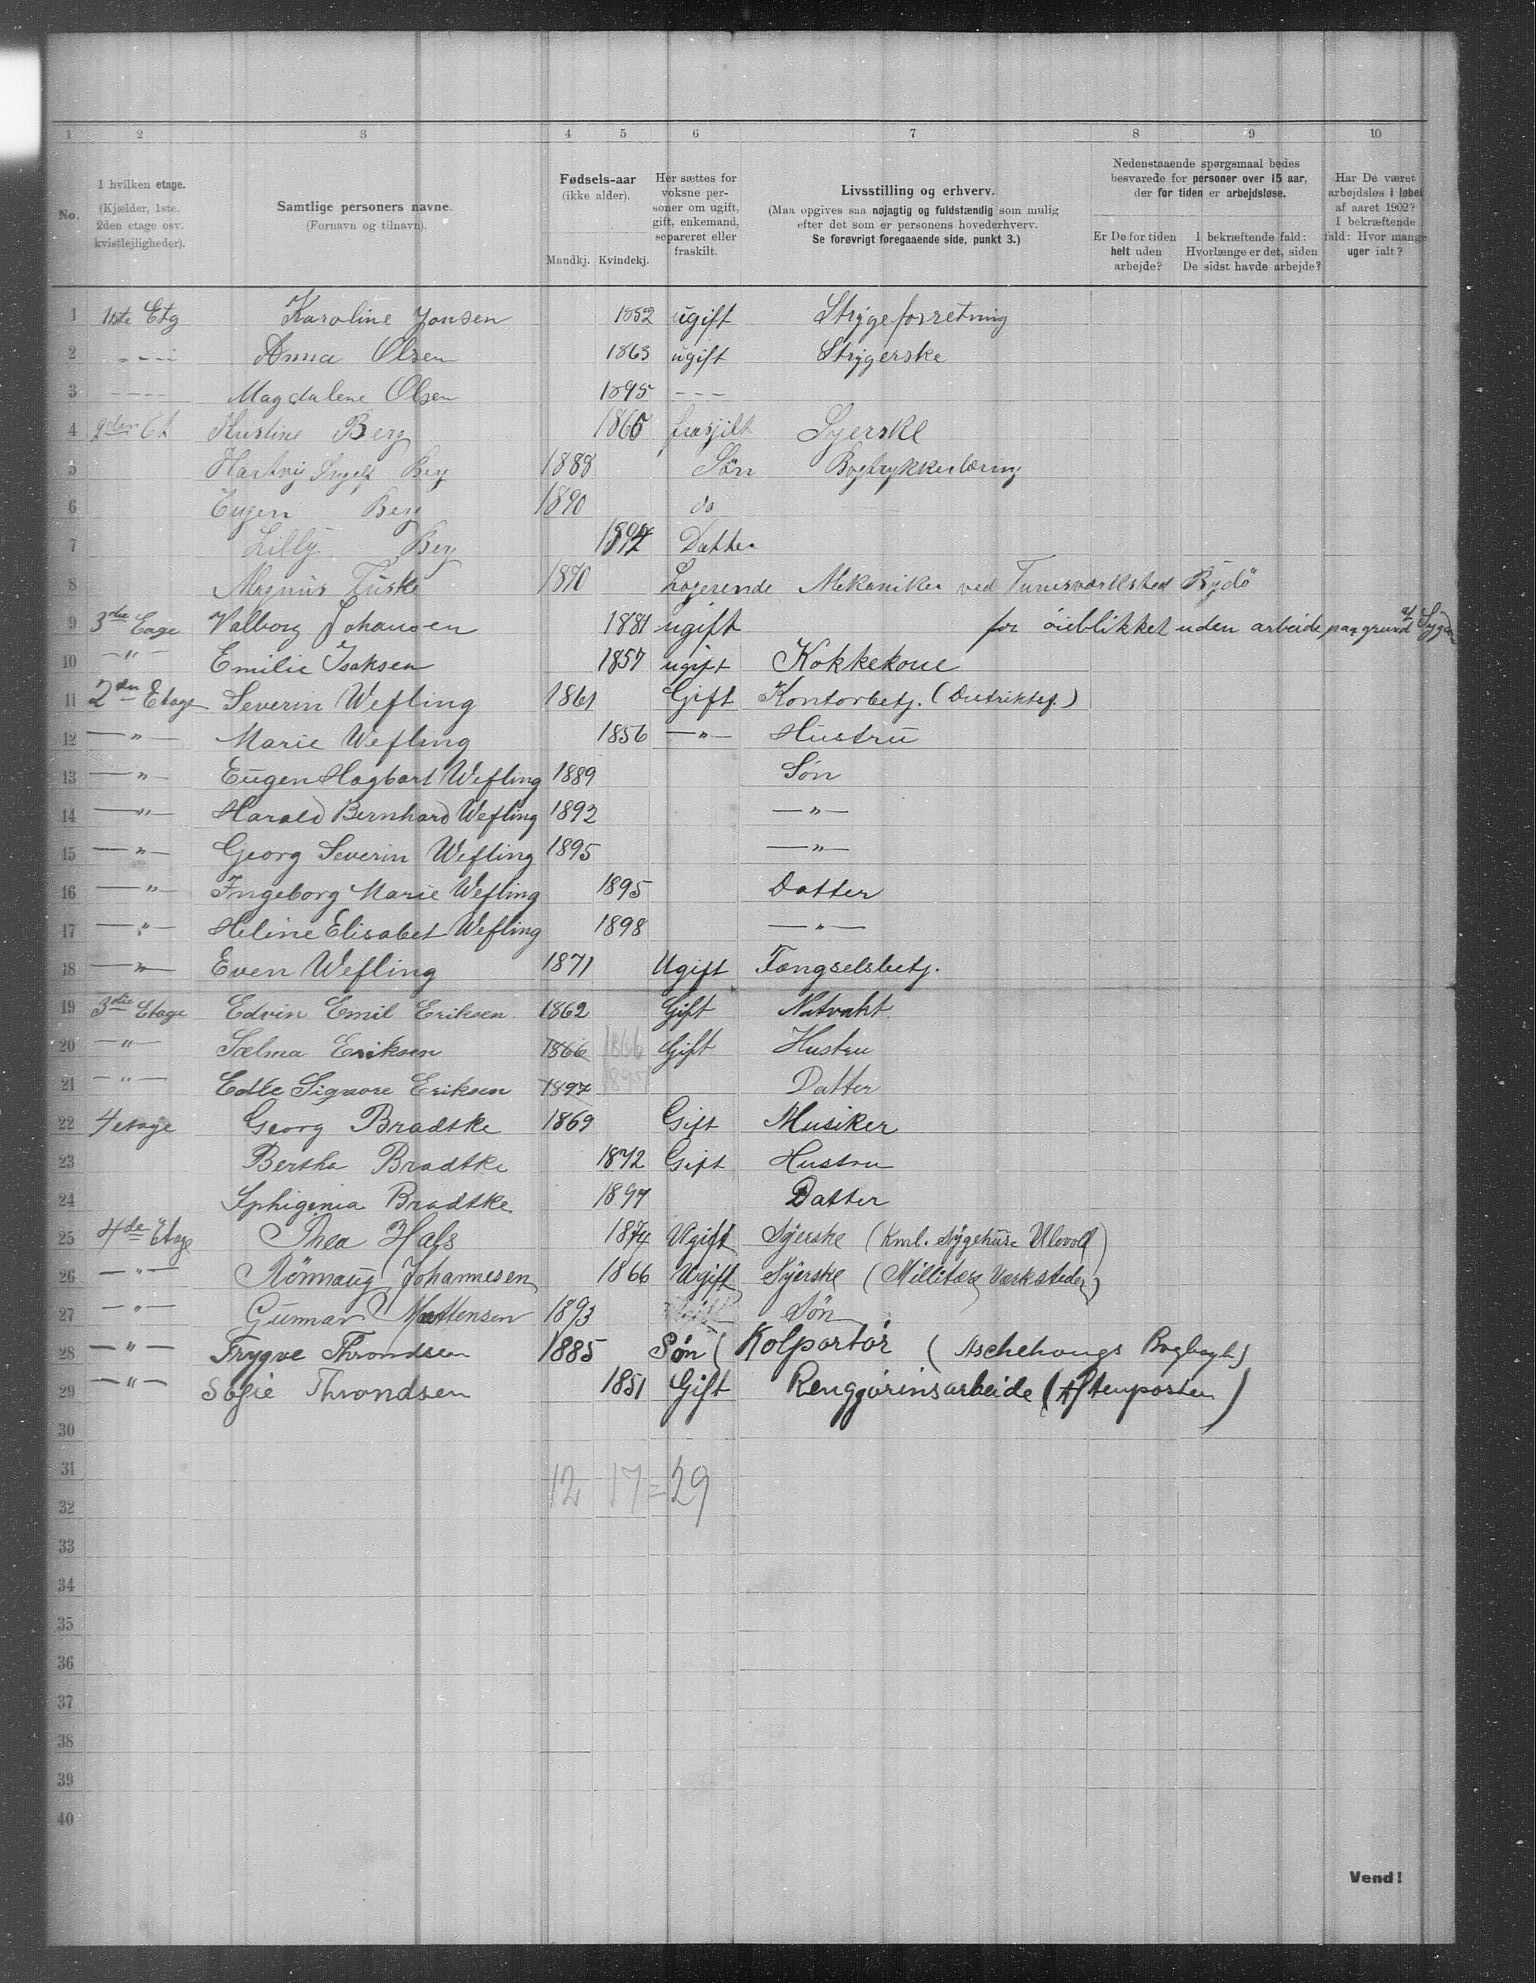 1 2 3 4 5 6 7 8 9 10
No.
I hvilken etage.
(Kjælder, 1ste.
2den etage osv.
kvistlejligheder).
Samtlige personers navne.
(Fornavn og tilnavn).
Fødsels-aar
(ikke alder).
Mandkj. Kvindekj.
Her sættes for
voksne per-
soner om ugift,
gift, enkemand,
separeret eller
fraskilt.
Livsstilling og erhverv.
(Maa opgives saa nøjagtig og fuldstændig som mulig
efter det som er personens hovederhverv.
Se forøvrigt foregaaende side, punkt 3.)
Nedenstaaende spørgsmaal bedes
besvarede for personer over 15 aar,
der for tiden er arbejdsløse.
Er De for tiden
helt uden
arbejde?
I bekræftende fald:
Hvorlænge er det, siden
De sidst havde arbejde?
Har De været
arbejdsløs i løbet
af aaret 1902?
I bekræftende
fald: Hvor mange
uger ialt?
1 1ste Etg Karoline Jonsen 1852 ugift Strygeforretning
2 " Anna Olsen 1863 ugift Strygerske
3 ---- Magdalene Olsen 1895 ---
4 2den Et Kristine Berg 1865 frasjilt Syerske
5 Hartvig Berg 1888 Søn Bogtrykkerlæring
6 Eugen Berg 1890 do
7 Lilly Berg 1894 Datter
8 Magnus 1870 Logerende Mekaniker ved
9 3die Etage Valborg Johansen 1881 ugift for öieblikket uden arbeide paa grund af
10 —"— Emilie Isaksen 1857 ugift Kokkekone
11 2den Etage Severin Wefling 1861 Gift Kontorbetj.
12 —"— Marie Wefling 1856 —"— Hustru
13 —"— Eugen Hagbart Wefling 1889 Søn
14 —"— Harald Bernhard Wefling 1892 —"—
15 —"— Georg Severin Wefling 1895 —"—
16 —"— Ingeborg Marie Wefling 1895 Datter
17 —"— Helene Elisabet Wefling 1898 —"—
18 —"— Even Wefling 1871 Ugift Fængselsbetj.
19 3die Etage Edvin Emil Eriksen 1862 Gift Natvakt.
20 —"— Sælma Eriksen 1866 1866 Gift Hustru
21 —"— Edle Signore Eriksen 1897 1897 Datter
22 4 etage Georg Bradtke 1869 Gift Musiker
23 Bertha Bradtke 1872 Gift Hustru
24 Iphigenia Bradtke 1897 Datter
25 4de Etage Thea Hals 1874 Ugift Syerske (Kml. Sygehuse Ulevold)
26 —"— Rönnaug Johannesen 1866 Ugift Syerske (Millitære Værksteder)
27 —"— Gunnar Mattensen 1893 Søn
28 —"— Trygve Throndsen 1885 Søn ( Kolportör (Aschehougs
29 —"— Sofie Throndsen 1851 Gift Renggörinsarbeide (Aftenposten)
30
31 12 17 = 29
32
33
34
35
36
37
38
39
40
Vend!